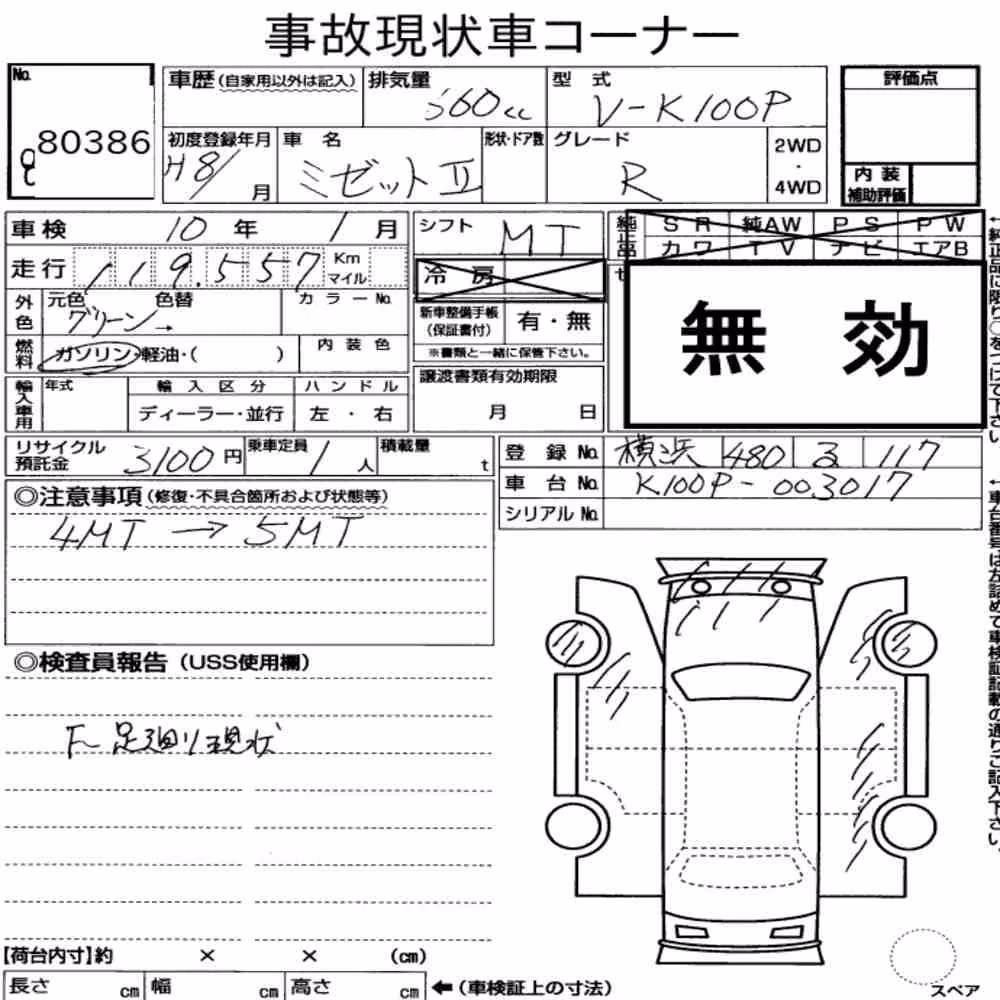 事故現状車コーナー
No. 80386
車歴(自家用以外は記入) 排気量 型式 評価点
360cc V-K100P
初度登録年月 車名 形状・ドア数 グレード 2WD・4WD 内装補助評価
H8/ 月 ミゼットⅡ R
車検 10年 1月 シフト MT 純正品 SR 純AW PS PW
カワ TV ナビ エアB
走行 119.557 Km マイル 冷房
外色 元色 色替 カラーNo. 新車整備手帳(保証書付) 有・無
グリーン→ ※書類と一緒に保管下さい。
燃料 ガソリン・軽油・( ) 内装色 無効
輸入車用 年式 輸入区分 ハンドル 譲渡書類有効期限
ディーラー・並行 左・右 月 日
リサイクル預託金 3100円 乗車定員 1人 積載量 t 登録No. 横浜 480 る 117
車台No. K100P-003017
◎注意事項(修復・不具合箇所および状態等) シリアルNo.
4MT → 5MT
◎検査員報告(USS使用欄)
F 足廻り現状
【荷台内寸】約 × × (cm)
長さ cm 幅 cm 高さ cm ←(車検証上の寸法)
スペア
←純正品に限り○をつけて下さい
←車台番号は左詰めで車検証記載の通りご記入下さい。